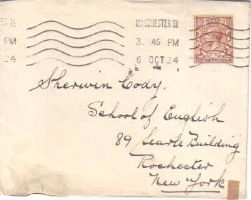 MANCHESTER
PM 3. 45 PM
24 6 OCT 24
Sherwin Cody.
School of English
89 Searle Building
Rochester
New York